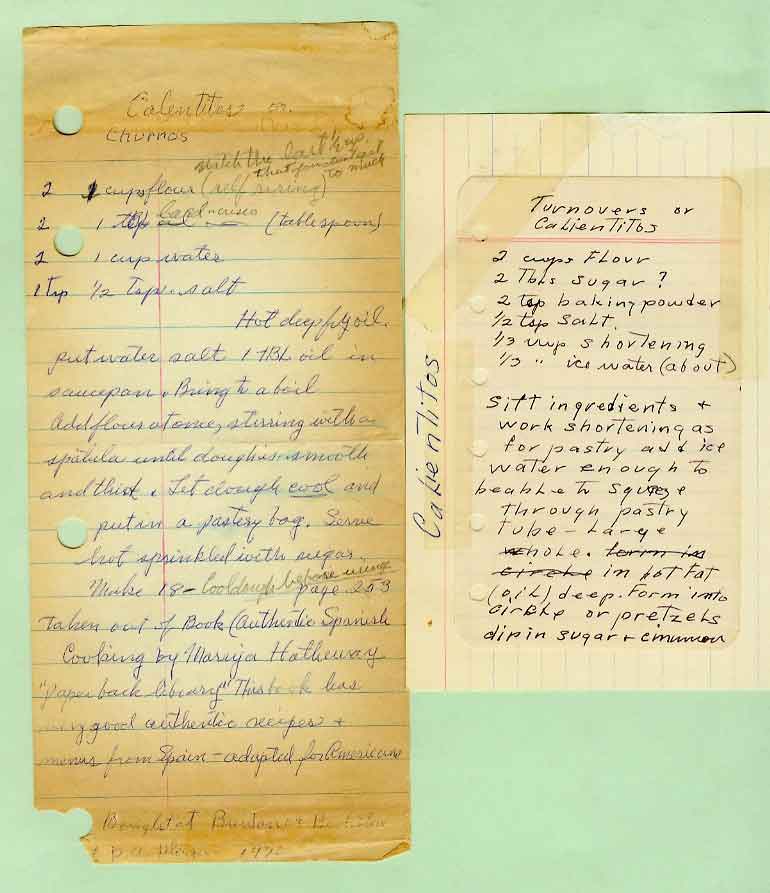 Calentitos or
Churros
watch the last two
that you don't get
to much
2 1 cups flour (self rising)
2 1 tbp oil Lard - crisco (tablespoon)
2 1 cup water
1 tsp 1/2 Tsp. salt
Hot deep fry oil.
put water salt 1 TBL oil in
saucepan. Bring to a boil
Add flour at once, stirring with a
spatula until dough is smooth
and thick. Let dough cool and
put in a pastery bag. Serve
hot sprinkled with sugar.
Make 18 - Cool dough before using
page 253
taken out of Book (Authentic Spanish
Cooking by Maruja Hatheway
"Paper back library" This book has
very good authentic recipes +
menus from Spain - adapted for Americans
Bought at
1970
Calientitos
Turnovers or
Calientitos
2 cups Flour
2 Tbls Sugar ?
2 tsp baking powder
1/2 tsp Salt.
1/3 cup shortening
1/3 " ice water (about)
Sift ingredients +
work shortening as
for pastry add ice
water enough to
be able to squeze
through pastry
tube - Large
whole. form in
circke in hot fat
(oil) deep. form into
circke or pretzels
dip in sugar +